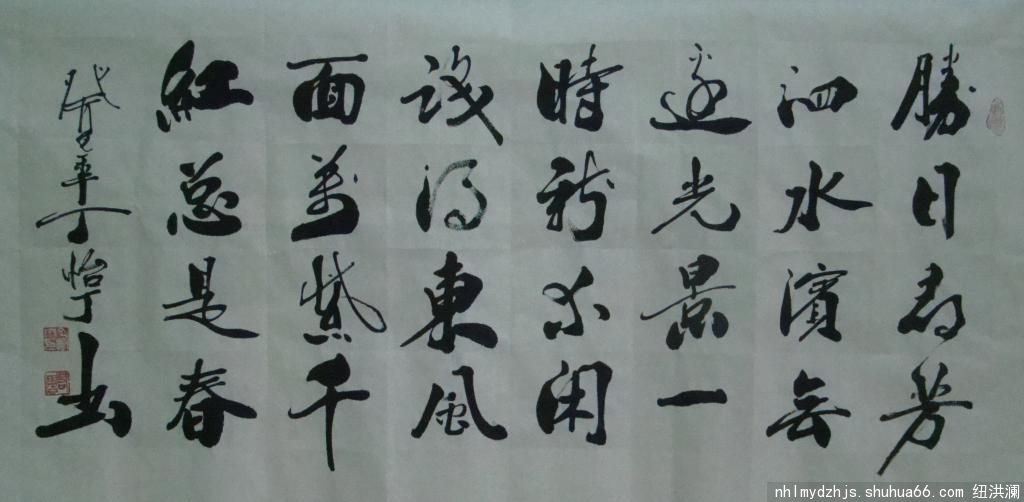 勝日尋芳
泗水濱無
邊光景一
時新等閑
識得東風
面萬紫千
紅總是春
年丁怡書
nhlmydzhjs.shuhua66.com 纽洪澜